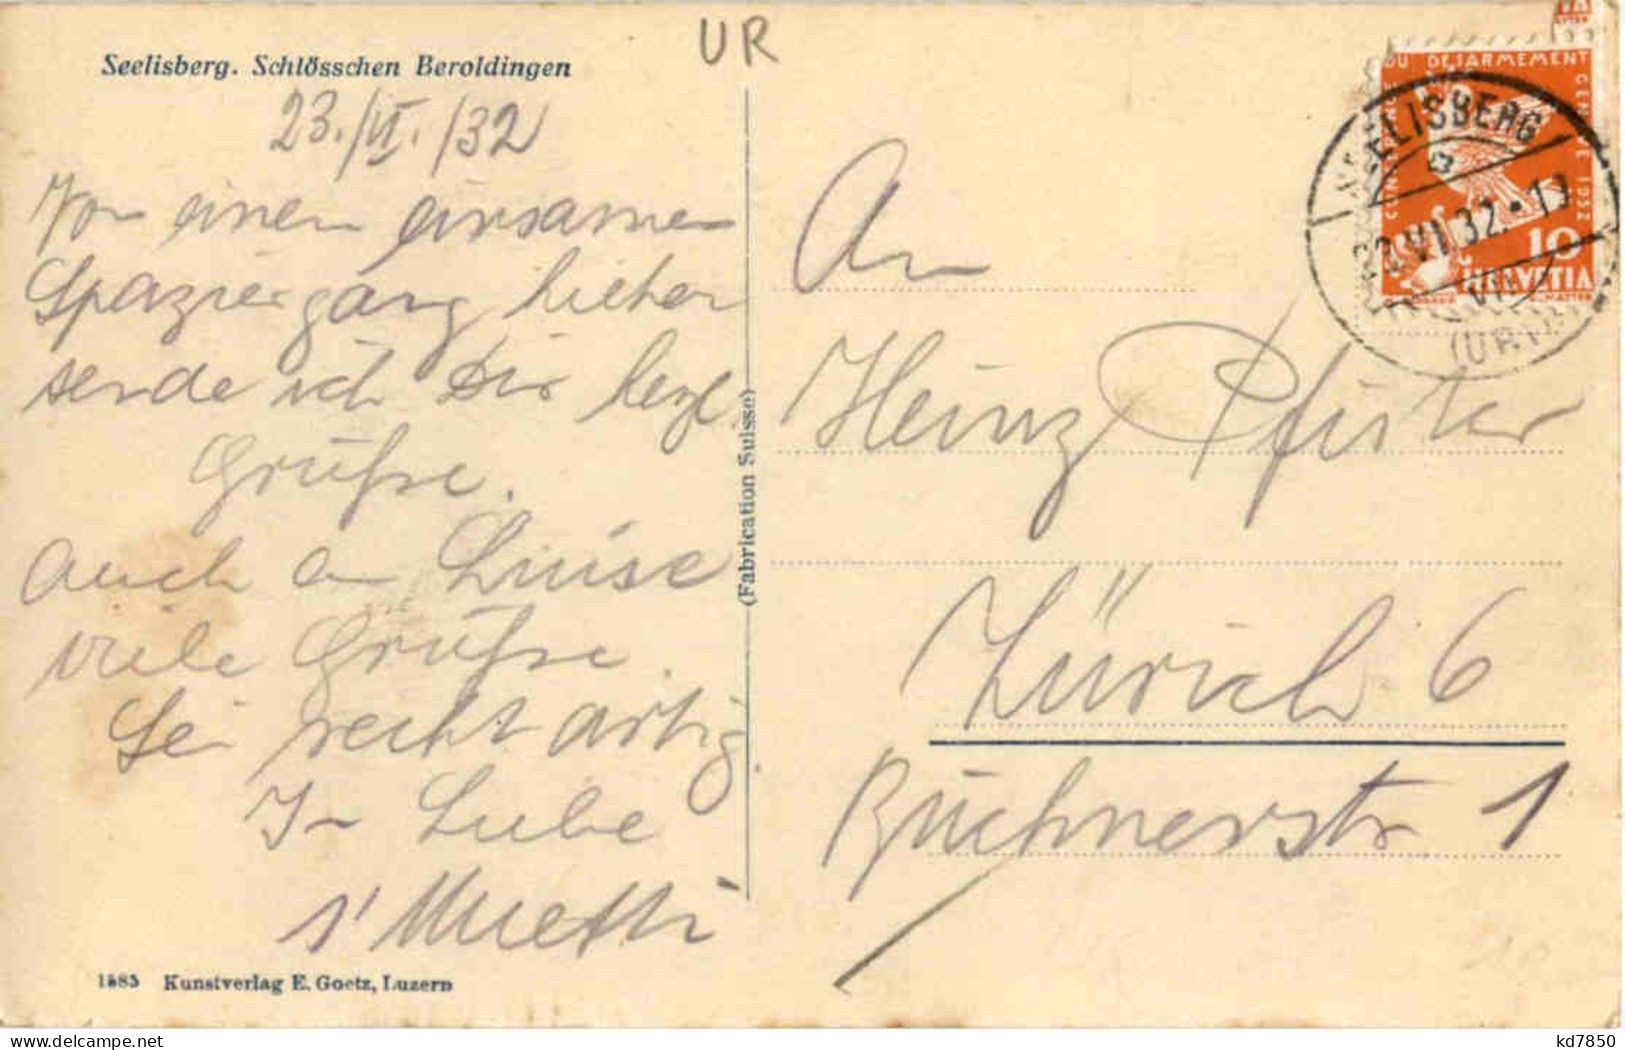 UR
Seelisberg. Schlösschen Beroldingen
23./VI./32
Von einem einsamen
Spaziergang lieber
sende ich Dir herzl.
Grüße.
Auch an Luise
viele Grüße.
Sei recht artig
In Liebe
s' Muetti
1585 Kunstverlag E. Goetz, Luzern
(Fabrication Suisse)
An
Heinz Pfister
Zürich 6
Büchnerstr 1
DU DESARMEMENT
GENEVE 1932
10
HELVETIA
SEELISBERG
23.VI.32.
(URI)
kd7850